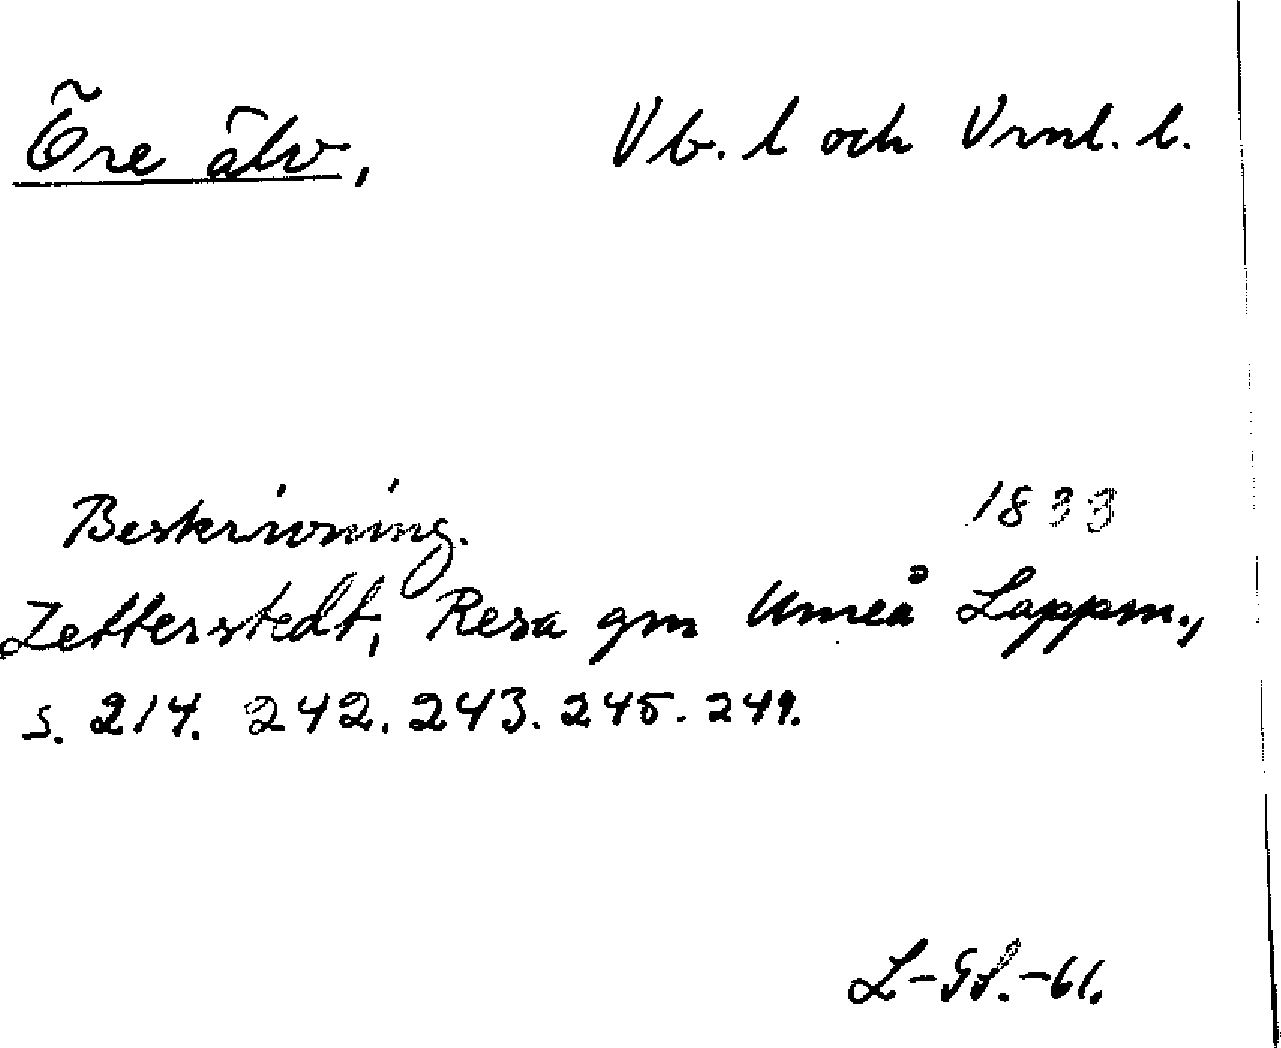 Öre älv, Vb. l och Vrml. l.
Beskrivning. 1833
Zetterstedt, Resa gm Umeå Lappm.,
s. 214. 242. 243. 245. 249.
L-Gl.-61.